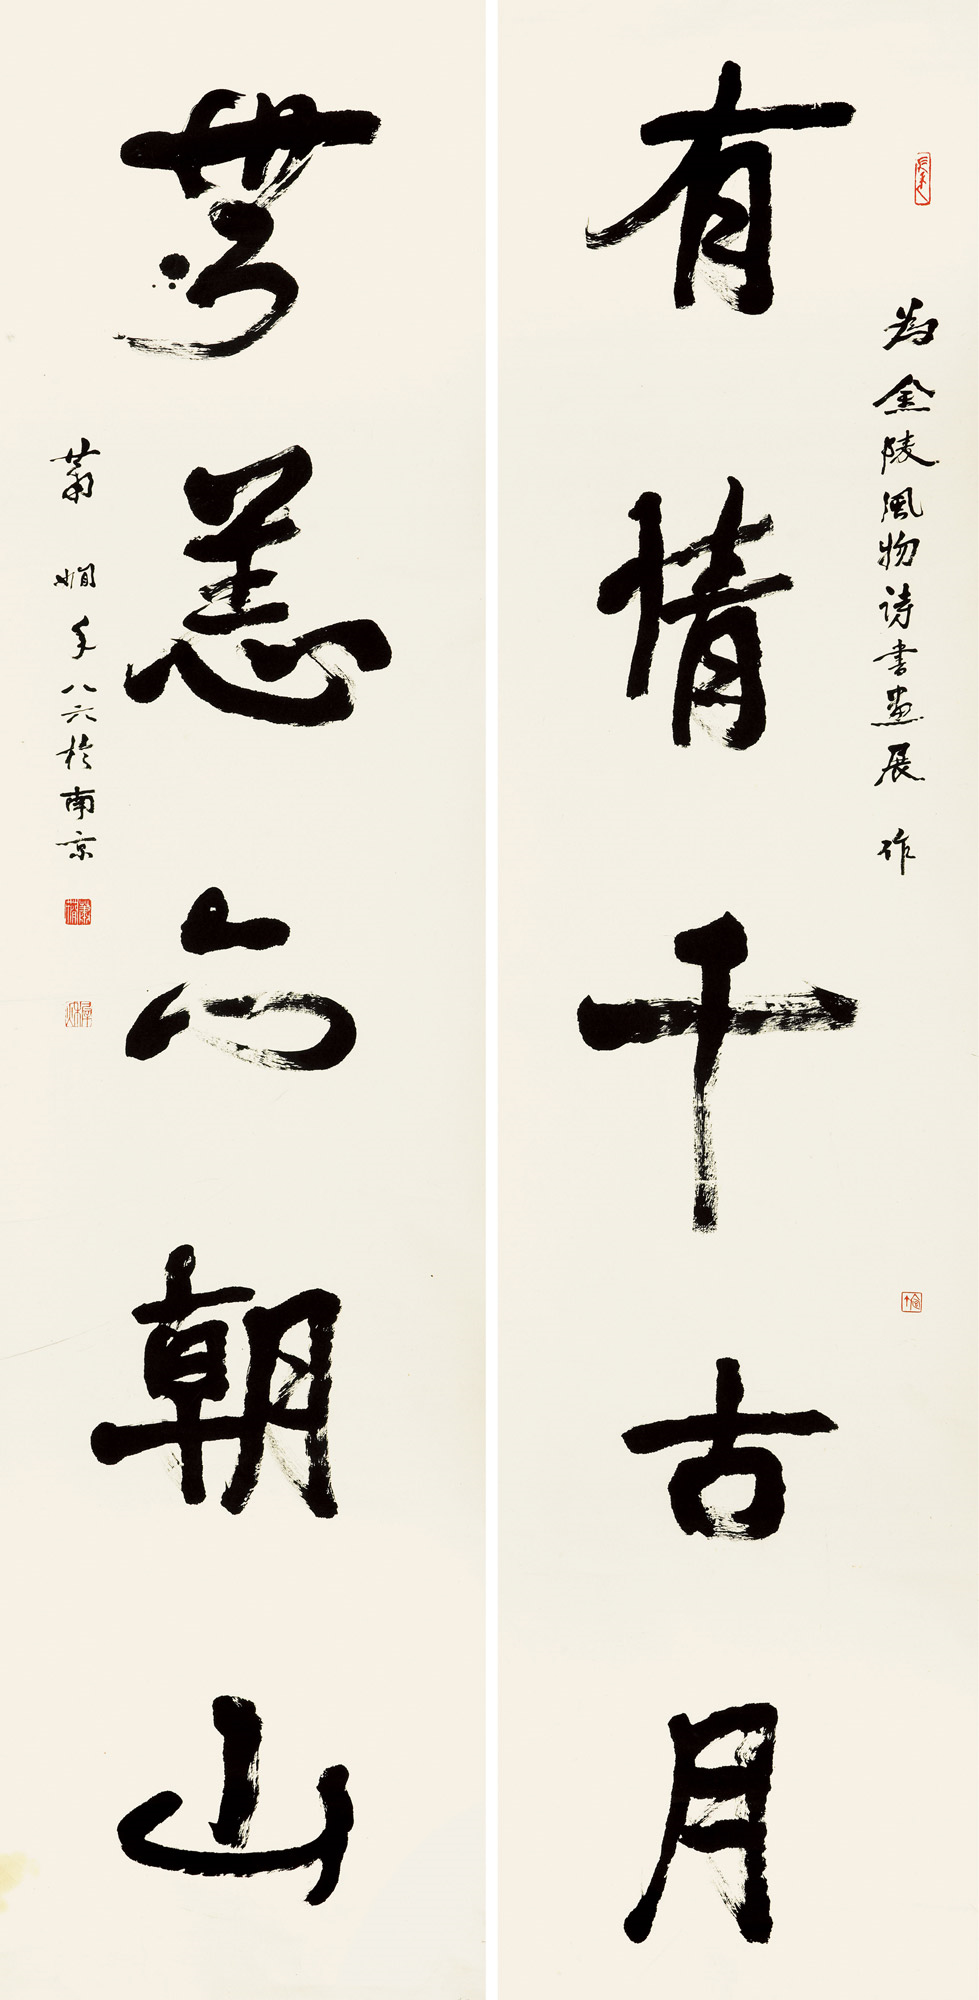 為金陵風物詩書畫展作
有情千古月
無恙六朝山
蕭嫺年八六於南京